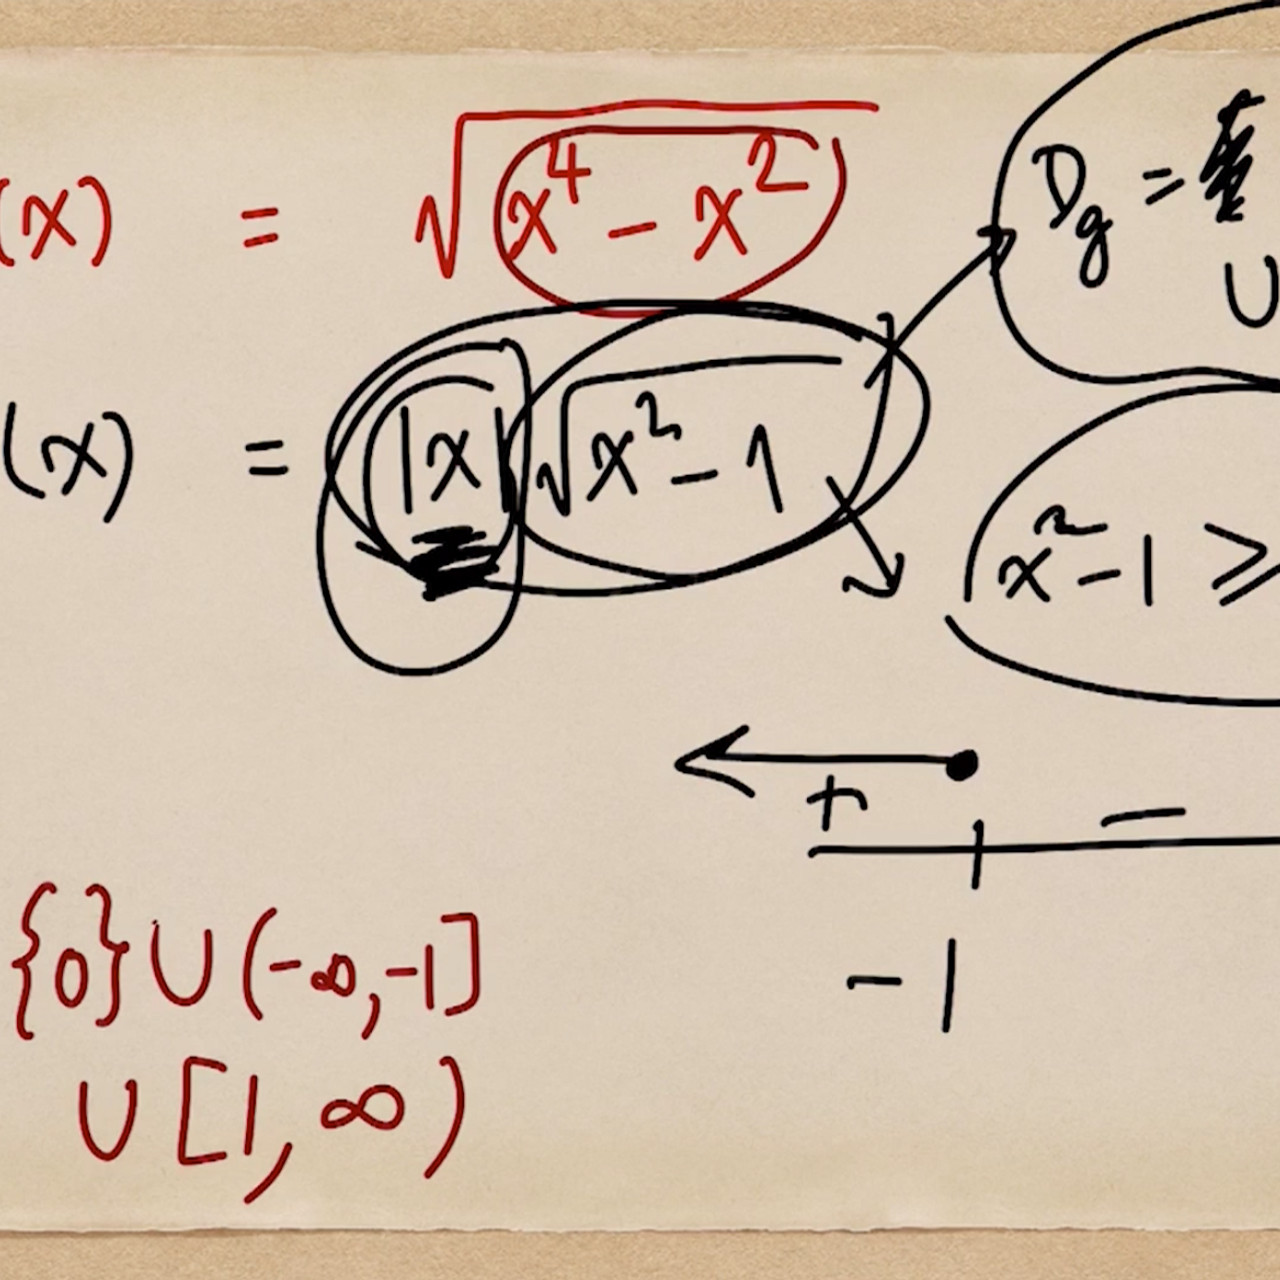 (x) = √(x⁴ - x²)
(x) = |x| √(x² - 1)
D_g =
∪
x² - 1 ≥
+ −
-1
{0} ∪ (-∞, -1]
∪ [1, ∞)